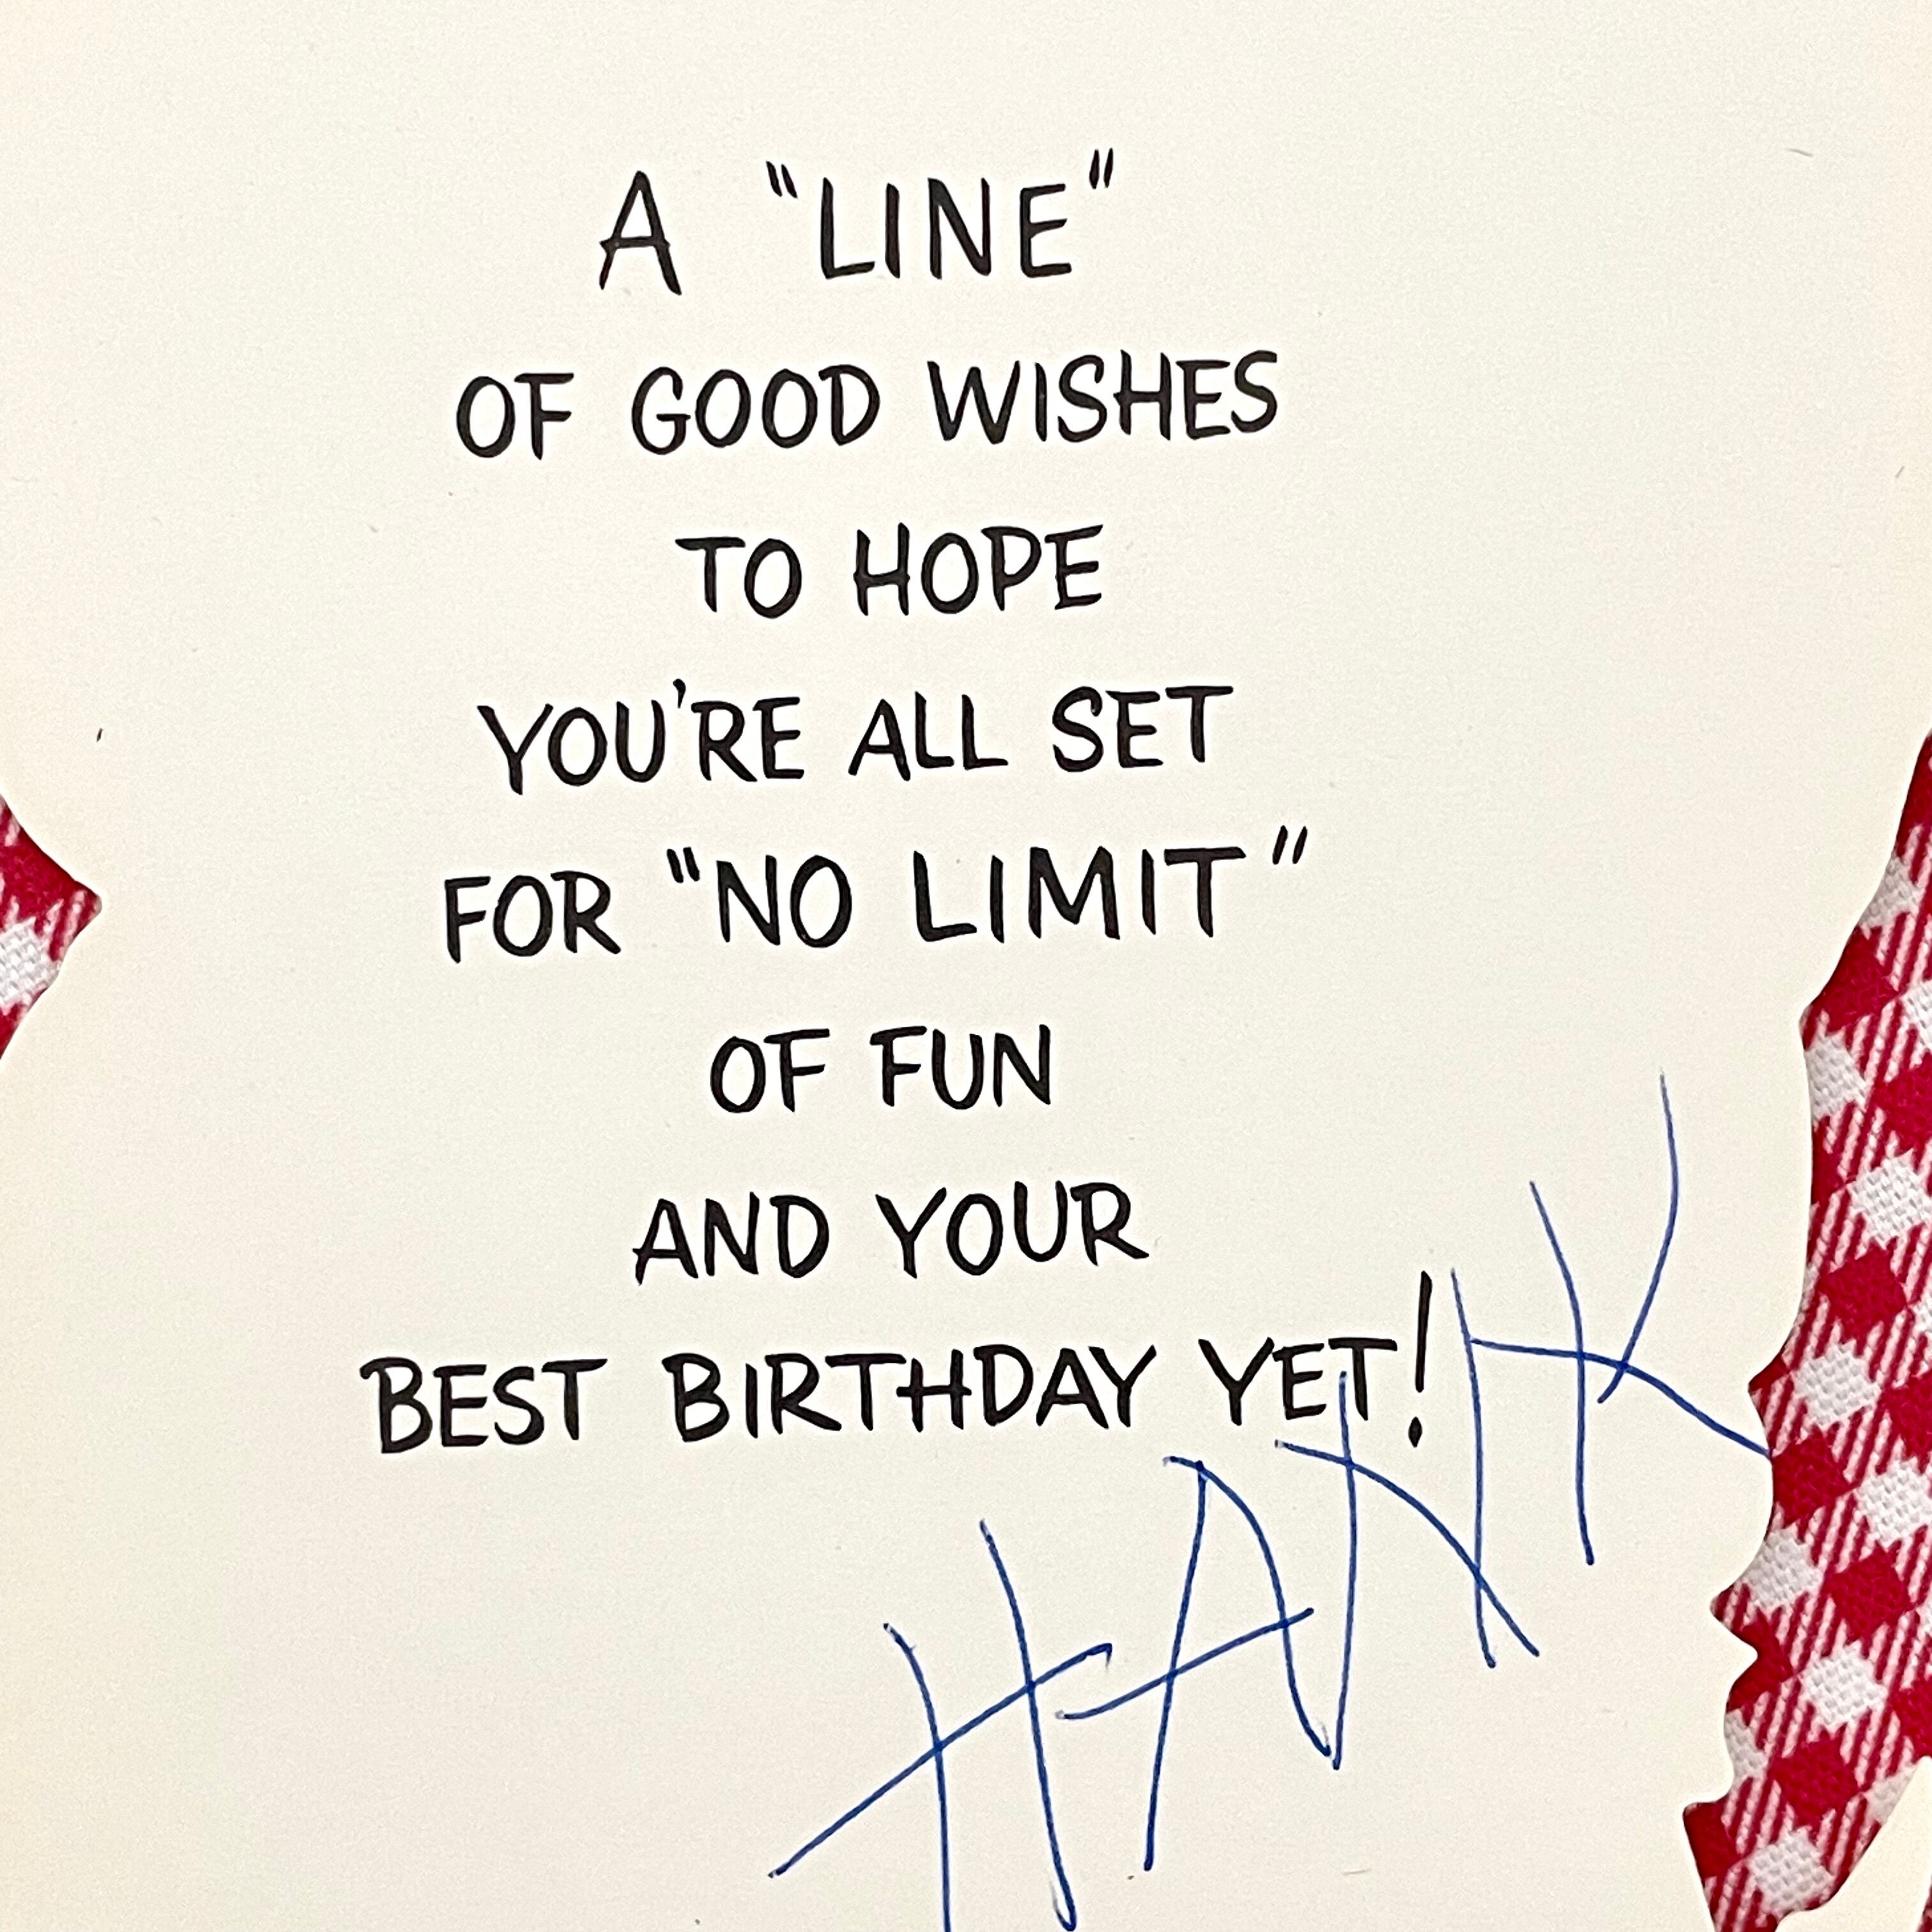 A "LINE"
OF GOOD WISHES
TO HOPE
YOU'RE ALL SET
FOR "NO LIMIT"
OF FUN
AND YOUR
BEST BIRTHDAY YET!
HANK